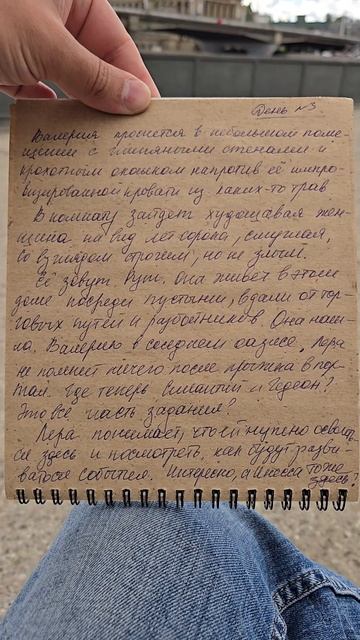 День №3
Валерия проснется в небольшом поме-
щении с глиняными стенами и
крохотным окошком напротив её импро-
визированной кровати из каких-то трав
В комнату зайдет худощавая жен-
щина, на вид лет сорока, смуглая,
со взглядом строгим, но не злым.
Её зовут Рут. Она живет в этом
доме посреди пустыни, вдали от тор-
говых путей и разбойников. Она наш-
ла Валерию в соседнем оазисе. Лера
не помнит ничего после прыжка в пор-
тал. Где теперь и Гедеон?
Это всё часть задания?
Лера понимает, что ей нужно освоить-
ся здесь и посмотреть, как будут разви-
ваться события. Интересно, а тоже
здесь?